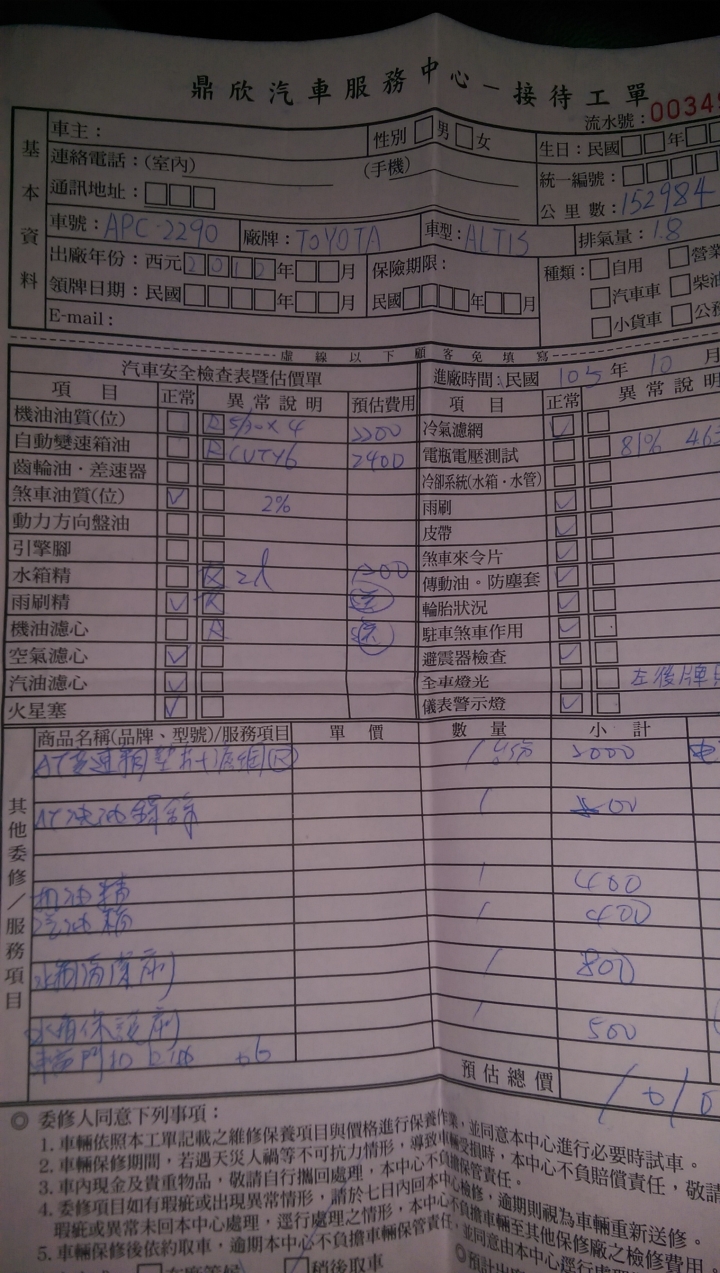 鼎欣汽車服務中心－接待工單
流水號：0034
基本資料
車主： 性別 □男 □女 生日：民國□□年
連絡電話：(室內) (手機) 統一編號：
通訊地址：□□□ 公里數：152984
車號：APC-2290 廠牌：TOYOTA 車型：ALTIS 排氣量：1.8
出廠年份：西元2012年□□月 保險期限： 種類：□自用 □營業
領牌日期：民國□□□□年□□月 民國□□□□年□□月 □汽車車 □柴油
E-mail： □小貨車 □公務
虛線以下顧客免填寫
汽車安全檢查表暨估價單 進廠時間：民國 105年 10月
項目 正常 異常說明 預估費用 項目 正常 異常說明
機油油質(位) 5/30×4 2200 冷氣濾網
自動變速箱油 2400 電瓶電壓測試 81%
齒輪油．差速器 冷卻系統(水箱．水管)
煞車油質(位) 2% 雨刷
動力方向盤油 皮帶
引擎腳 煞車來令片
水箱精 2l 1200 傳動油。防塵套
雨刷精 送 輪胎狀況
機油濾心 送 駐車煞車作用
空氣濾心 避震器檢查
汽油濾心 全車燈光 左後牌
火星塞 儀表警示燈
其他委修／服務項目
商品名稱(品牌、型號)/服務項目 單價 數量 小計
1 2000
1
1 400
汽油精 1 400
1 800
1 500
預估總價
◎ 委修人同意下列事項：
1. 車輛依照本工單記載之維修保養項目與價格進行保養作業，並同意本中心進行必要時試車。
2. 車輛保修期間，若遇天災人禍等不可抗力情形，導致車輛受損時，本中心不負賠償責任，敬請
3. 車內現金及貴重物品，敬請自行攜回處理，本中心不負擔保管責任。
4. 委修項目如有瑕疵或出現異常情形，請於七日內回本中心檢修，逾期則視為車輛重新送修。
瑕疵或異常未回本中心處理，逕行處理之情形，本中心不負擔車輛至其他保修廠之檢修費用。
5. 車輛保修後依約取車，逾期本中心不負擔車輛保管責任，並同意由本中心逕行處
□在廠等候 □稍後取車 ◎預計出